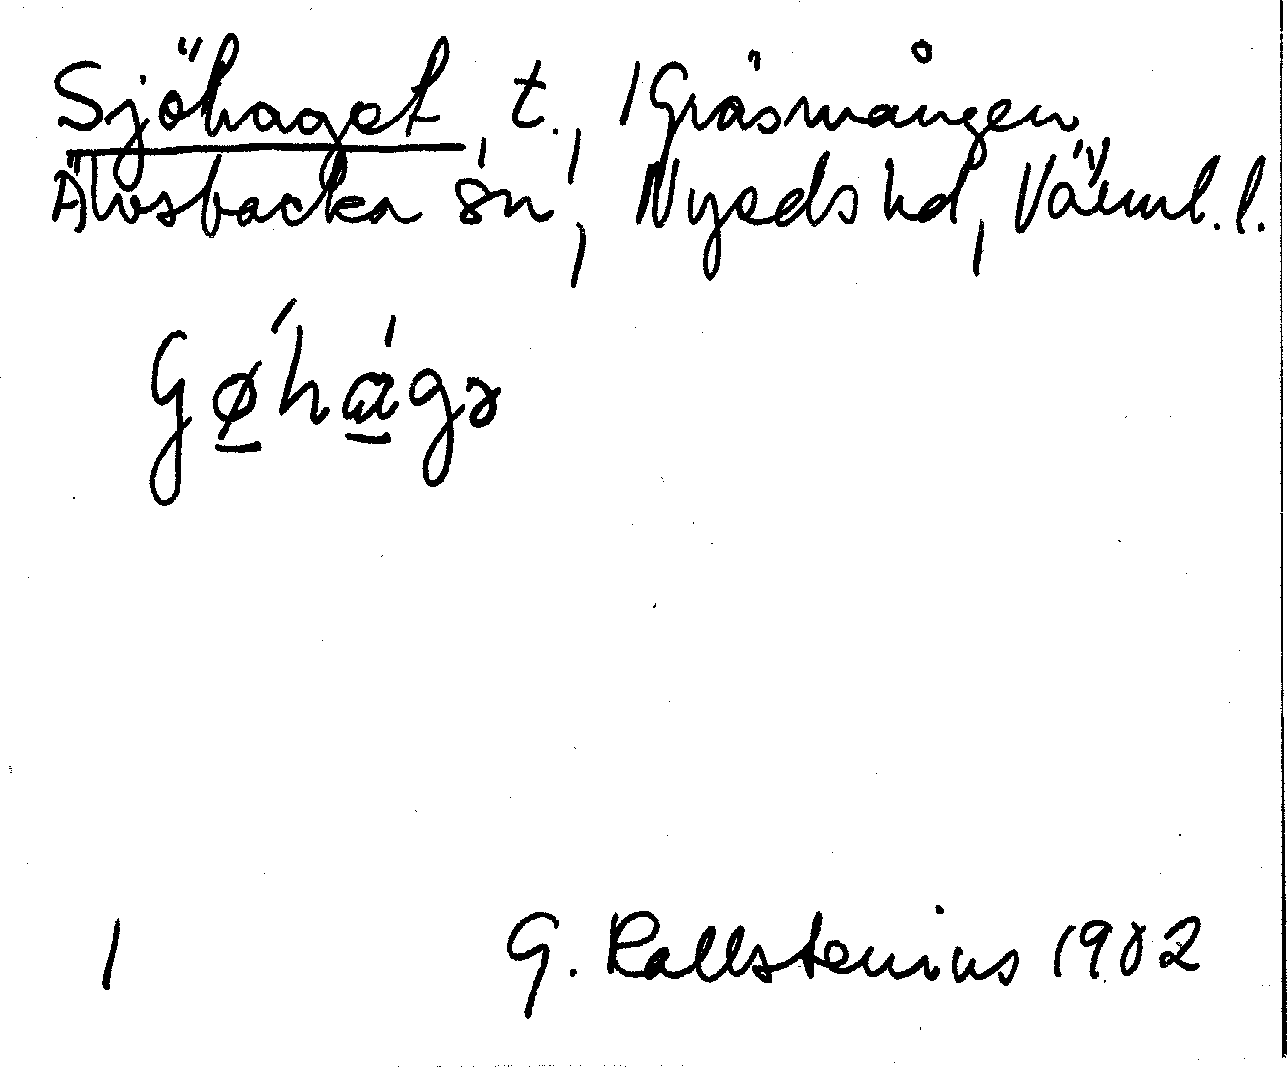 Sjöhaget, t., /Gräsmangen,
Älvsbacka sn, Nyeds hd, Värml. l.
1 G. Kallstenius 1902